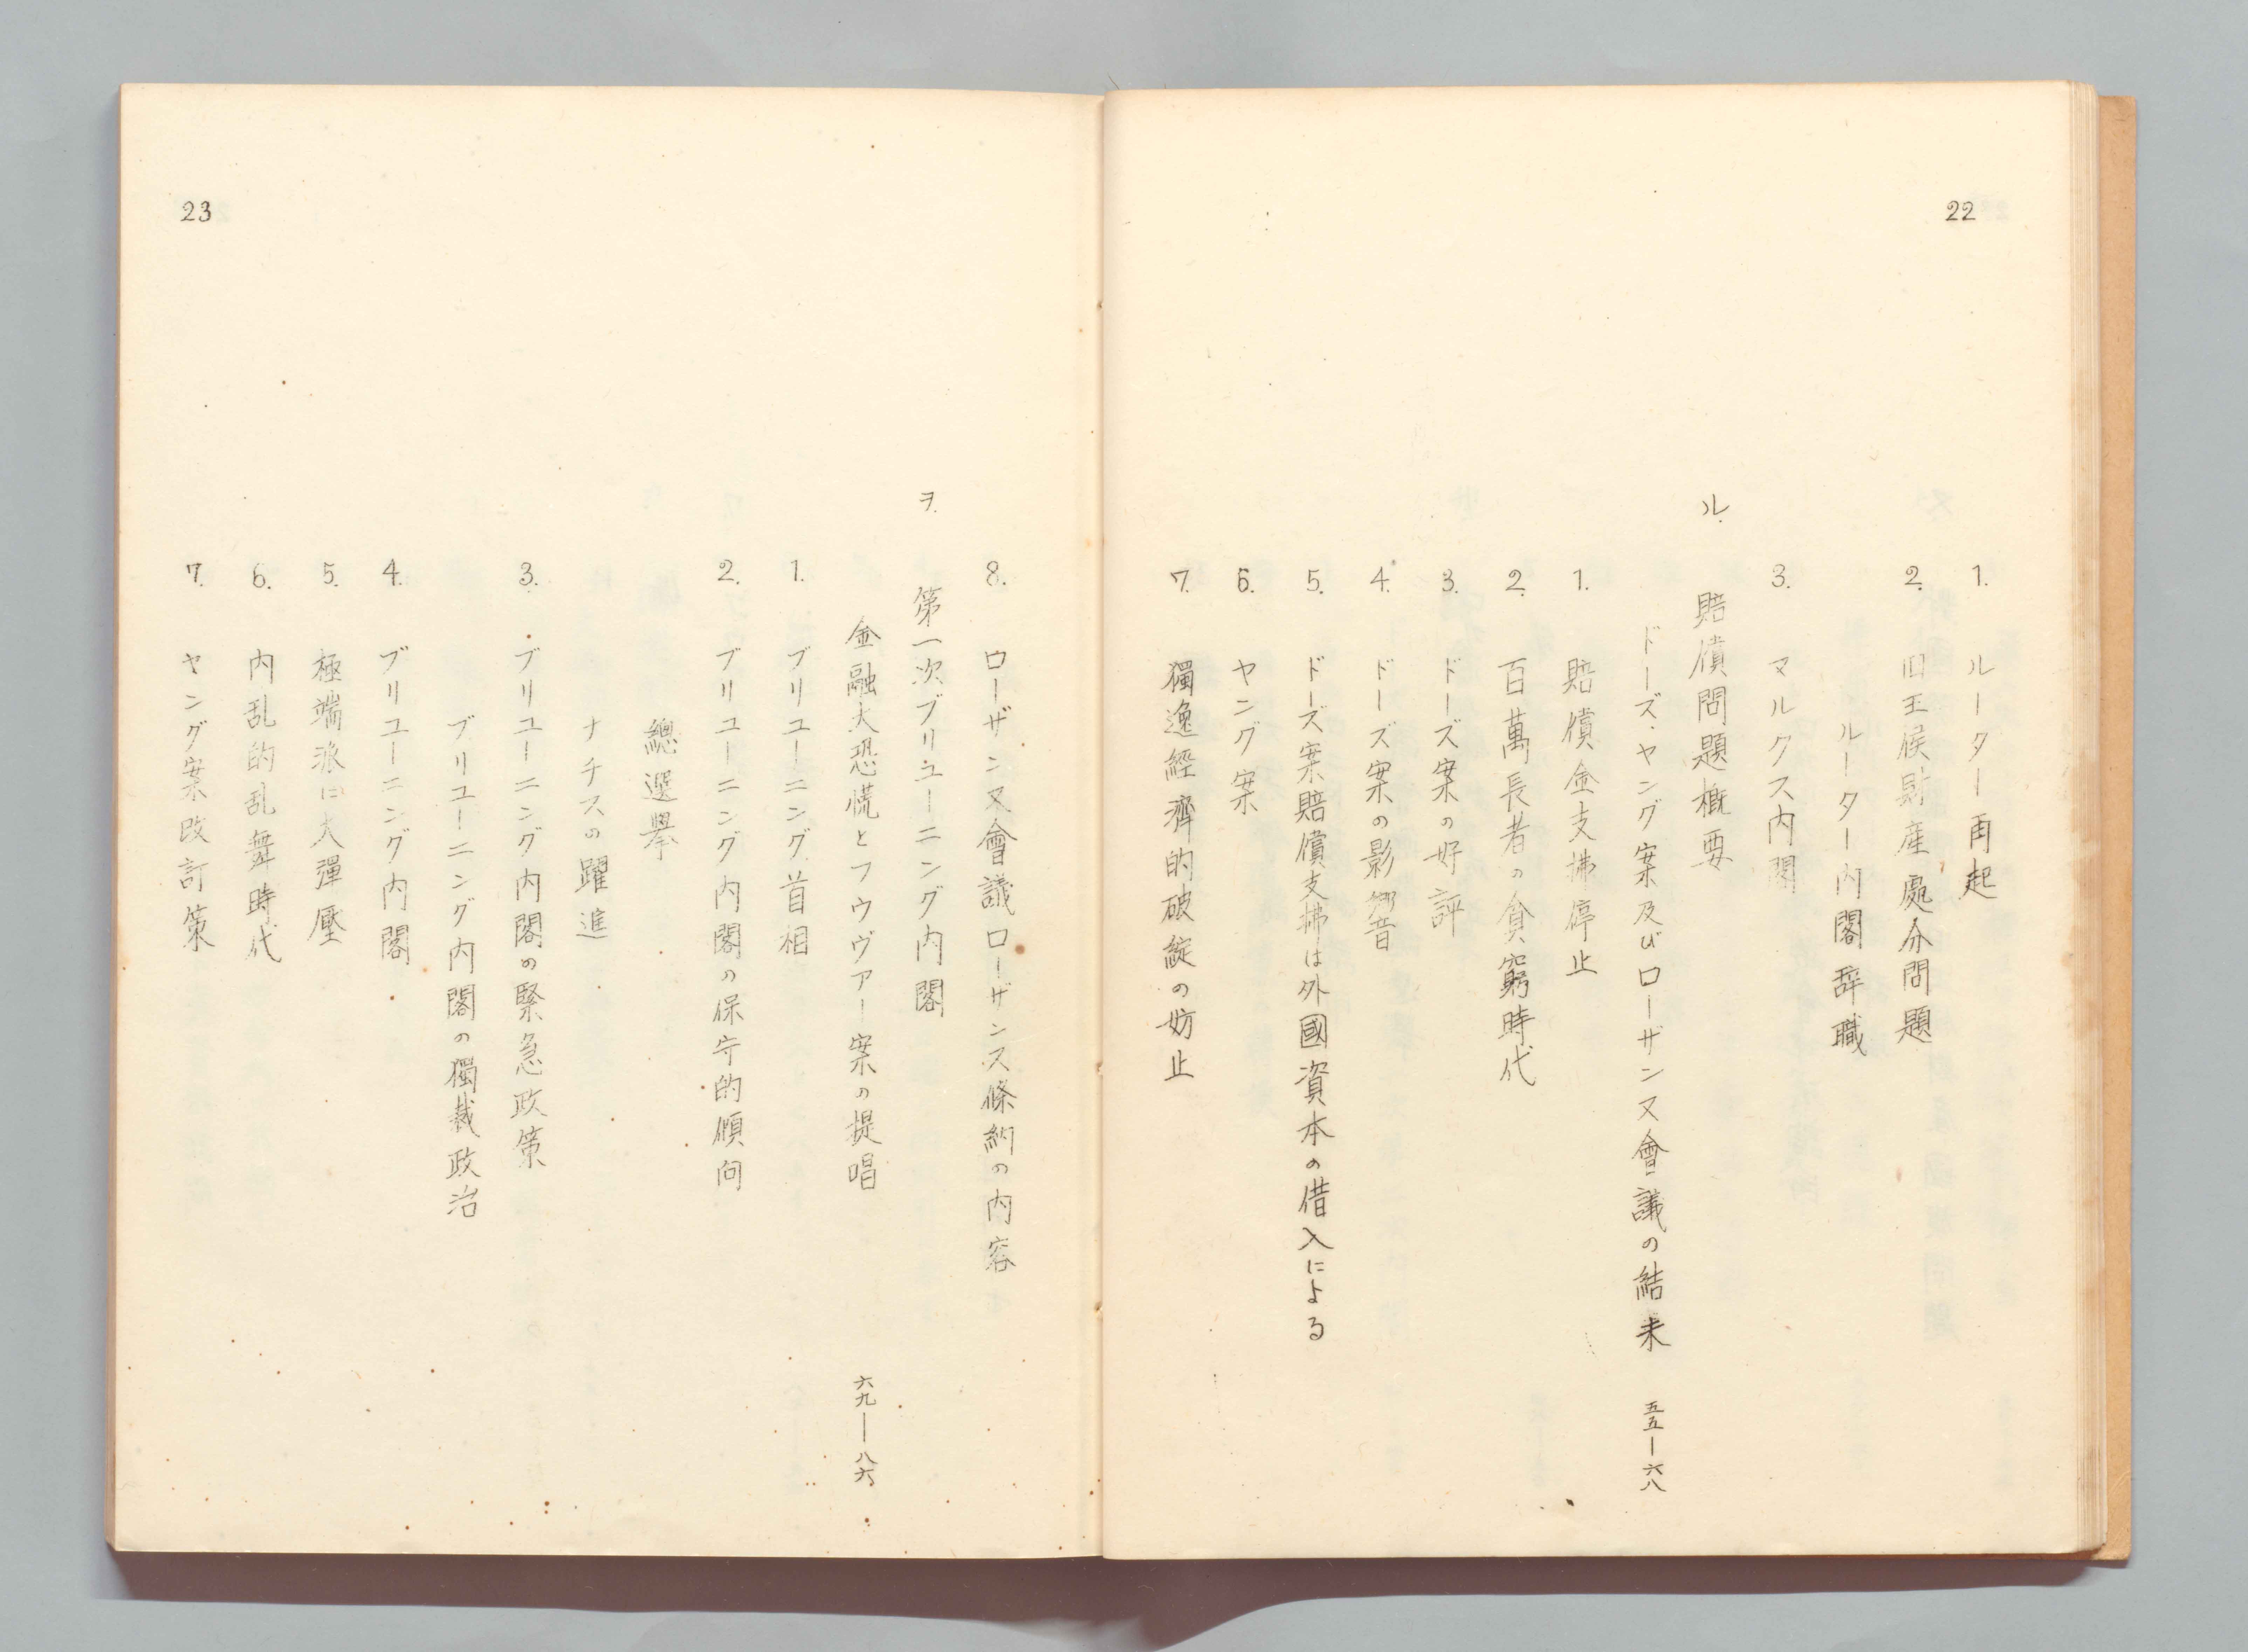 22
1. ルーター再起
2. 旧王侯財産處分問題
ルーター内閣辞職
3. マルクス内閣
ル. 賠償問題概要
ドーズ.ヤング案及びローザンヌ會議の結末 五五―六八
1. 賠償金支拂停止
2. 百萬長者の貧窮時代
3. ドーズ案の好評
4. ドーズ案の影響
5. ドーズ案賠償支拂は外國資本の借入による
6. ヤング案
7. 獨逸經濟的破綻の妨止
23
8. ローザンヌ會議ローザンス條約の内容
ヲ. 第一次ブリューニング内閣
金融大恐慌とフウヴァー案の提唱 六九―八六
1. ブリューニング首相
2. ブリューニング内閣の保守的傾向
總選擧
ナチスの躍進
3. ブリューニング内閣の緊急政策
ブリューニング内閣の獨裁政治
4. ブリューニング内閣
5. 極端派に大彈壓
6. 内乱的乱舞時代
7. ヤング案改訂策